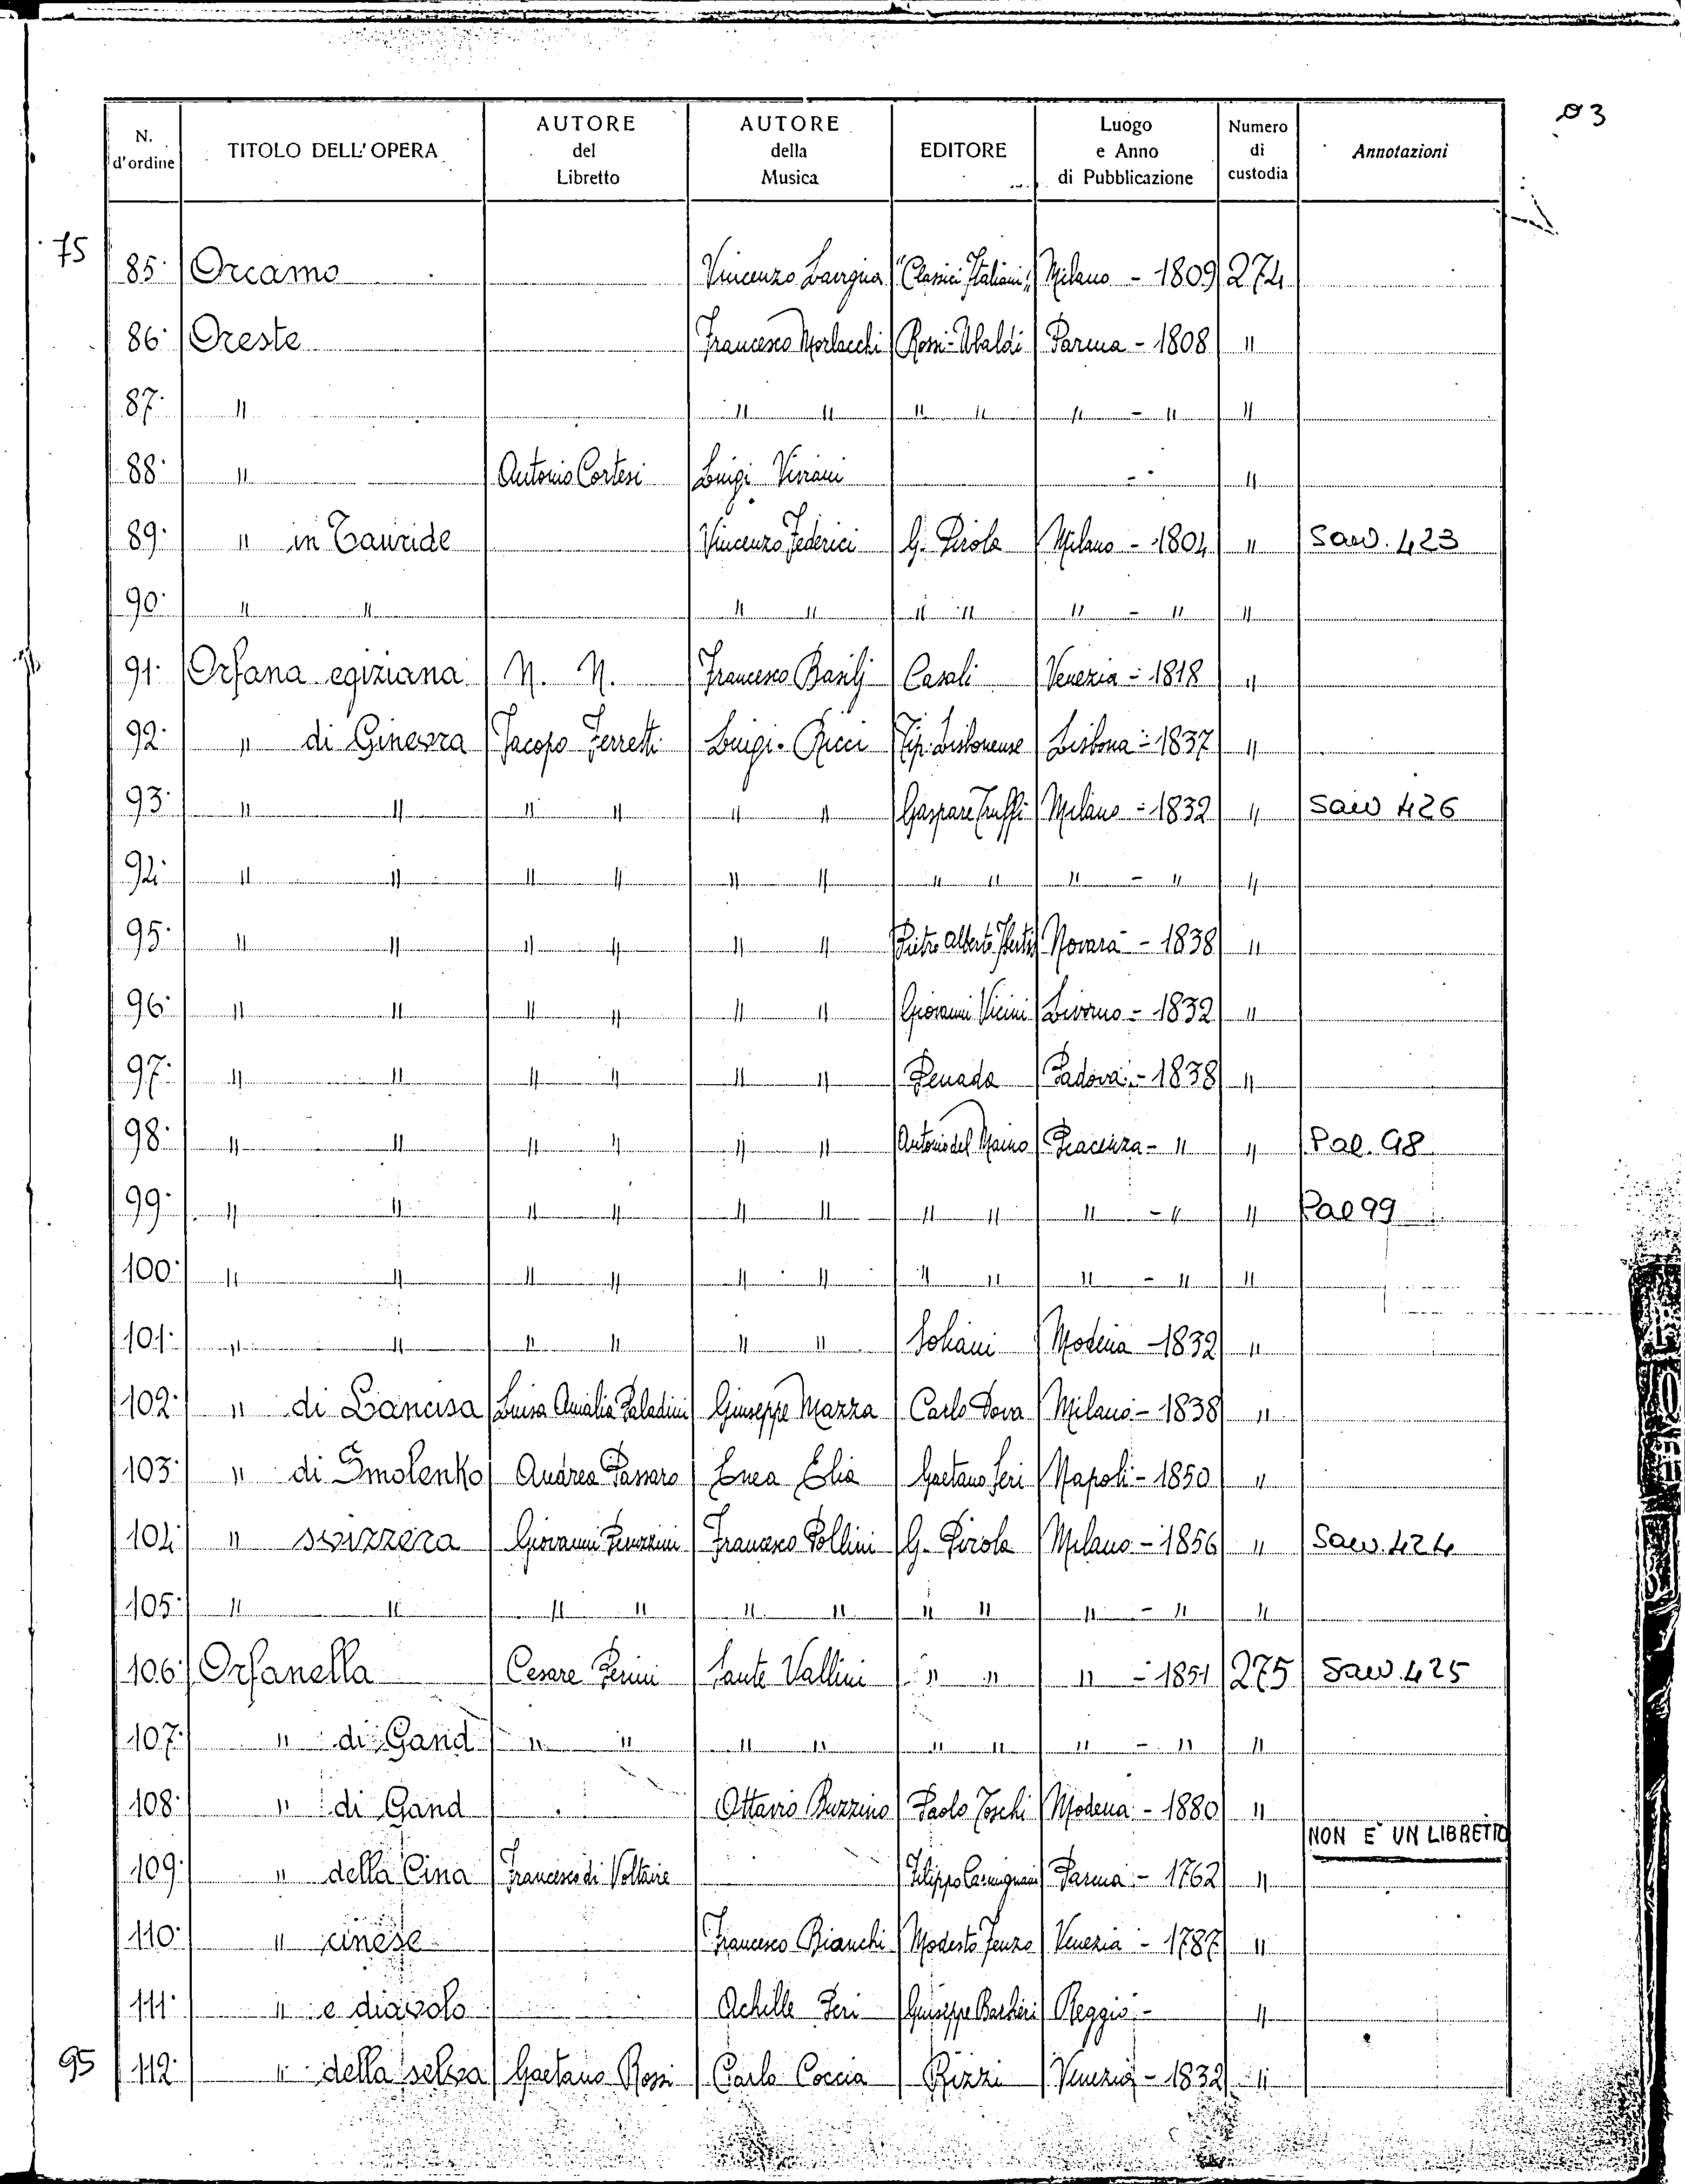 03
N. d'ordine TITOLO DELL'OPERA AUTORE del Libretto AUTORE della Musica EDITORE Luogo e Anno di Pubblicazione Numero di custodia Annotazioni
75 85· Orcamo Vincenzo Lavigna "Classici Italiani" Milano - 1809 274
86· Oreste Francesco Morlacchi Rossi-Ubaldi Parma - 1808 "
87· " " " " " " - " "
88· " Antonio Cortesi Luigi Viviani - "
89· " in Tauride Vincenzo Federici G. Pirola Milano - 1804 " Saw. 423
90· " " " " " " " - " "
91· Orfana egiziana N. N. Francesco Basilj Casali Venezia - 1818 "
92· " di Ginevra Jacopo Ferretti Luigi Ricci Tip. Lisbonense Lisbona - 1837 "
93· " " " " " " Gaspare Truffi Milano - 1832 " Saw 426
94· " " " " " " " " " - " "
95· " " " " " " Pietro Alberto Novara - 1838 "
96· " " " " " " Giovanni Vicini Livorno - 1832 "
97· " " " " " " Penada Padova - 1838 "
98· " " " " " " Antonio del Maino Piacenza - " " Pal. 98
99· " " " " " " " " " - " " Pal 99
100· " " " " " " " " " - " "
101· " " " " " " Soliani Modena - 1832 "
102· " di Lancisa Luisa Amalia Paladini Giuseppe Mazza Carlo Dova Milano - 1838 "
103· " di Smolenko Andrea Passaro Enea Elia Gaetano Seri Napoli - 1850 "
104· " svizzera Giovanni Peruzzini Francesco Pollini G. Pirola Milano - 1856 " Saw. 424
105· " " " " " " " " " - " "
106· Orfanella Cesare Perini Sante Vallini " " " - 1851 275 Saw. 425
107· " di Gand " " " " " " " - " "
108· " di Gand Ottavio Buzzino Paolo Toschi Modena - 1880 "
NON E' UN LIBRETTO
109· " della Cina Francesco di Voltaire Filippo Carmignani Parma - 1762 "
110· " cinese Francesco Bianchi Modesto Fenzo Venezia - 1787 "
111· " e diavolo Achille Peri Giuseppe Barbieri Reggio - "
95 112· " della selva Gaetano Rossi Carlo Coccia Rizzi Venezia - 1832 "